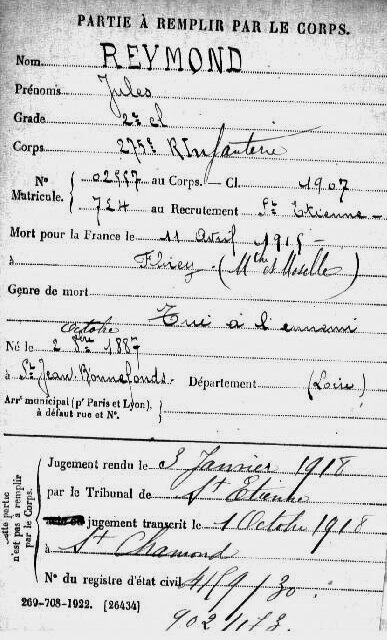 PARTIE À REMPLIR PAR LE CORPS.
Nom REYMOND
Prénoms Jules
Grade 2e cl
Corps 275e R Infanterie
N° 02557 au Corps. — Cl. 1907
Matricule. 724 au Recrutement St Etienne
Mort pour la France le 11 Avril 1915
à Flirey (Mthe et Moselle)
Genre de mort
Tué à l'ennemi
Octobre
Né le 2 1887
à St Jean Bonnefonds Département (Loire)
Arrt municipal (pr Paris et Lyon),
à défaut rue et N°.
Cette partie
n'est pas à remplir
par le Corps.
Jugement rendu le 3 Janvier 1918
par le Tribunal de St Etienne
jugement transcrit le 1 Octobre 1918
à St Chamond
N° du registre d'état civil 459/30.
269-708-1922. [26434]